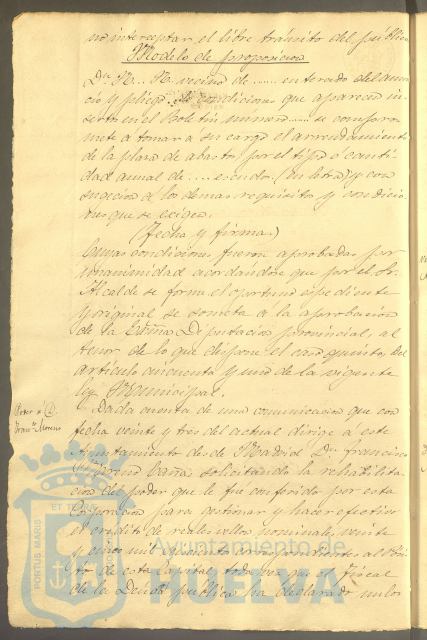 no interceptar el libre tránsito del público
Modelo de proposicion
Dn. N. N. vecino de ....... enterado del anun
cio y pliego de condiciones que aparecen in
serto en el Boletin número ....... se compro
mete á tomar á su cargo el arrendamiento
de la plaza de abastos, por el tipo ó canti-
dad anual de ..... escudos (en letra) y con
sugecion á los demas requisitos y condicio-
nes que se exigen.
(Fecha y firma.)
Cuyas condiciones fueron aprobadas por
unanimidad acordandose que por el Sr.
Alcalde se forme el oportuno espediente
y original se someta á la aprobacion
de la Excma. Diputacion provincial, al
tenor de lo que dispone el caso quinto, del
articulo cincuenta y uno de la vigente
ley Municipal.
Poder á D.
Franco. Moreno
Dada cuenta de una comunicacion que con
fecha veinte y tres del actual dirige á este
Ayuntamiento desde Madrid Dn. Francisco
Moreno Cañas solicitando la rehabilita
cion del poder que le fue conferido por esta
Corporacion para gestionar y hacer efectivo
el credito de reales vellon nominales, veinte
y cinco mil
de esta Capital, toda vez que el Fiscal
de la Deuda publica ha declarado nulos
PORTUS MARIS ET TERRAE
Ayuntamiento de
HUELVA